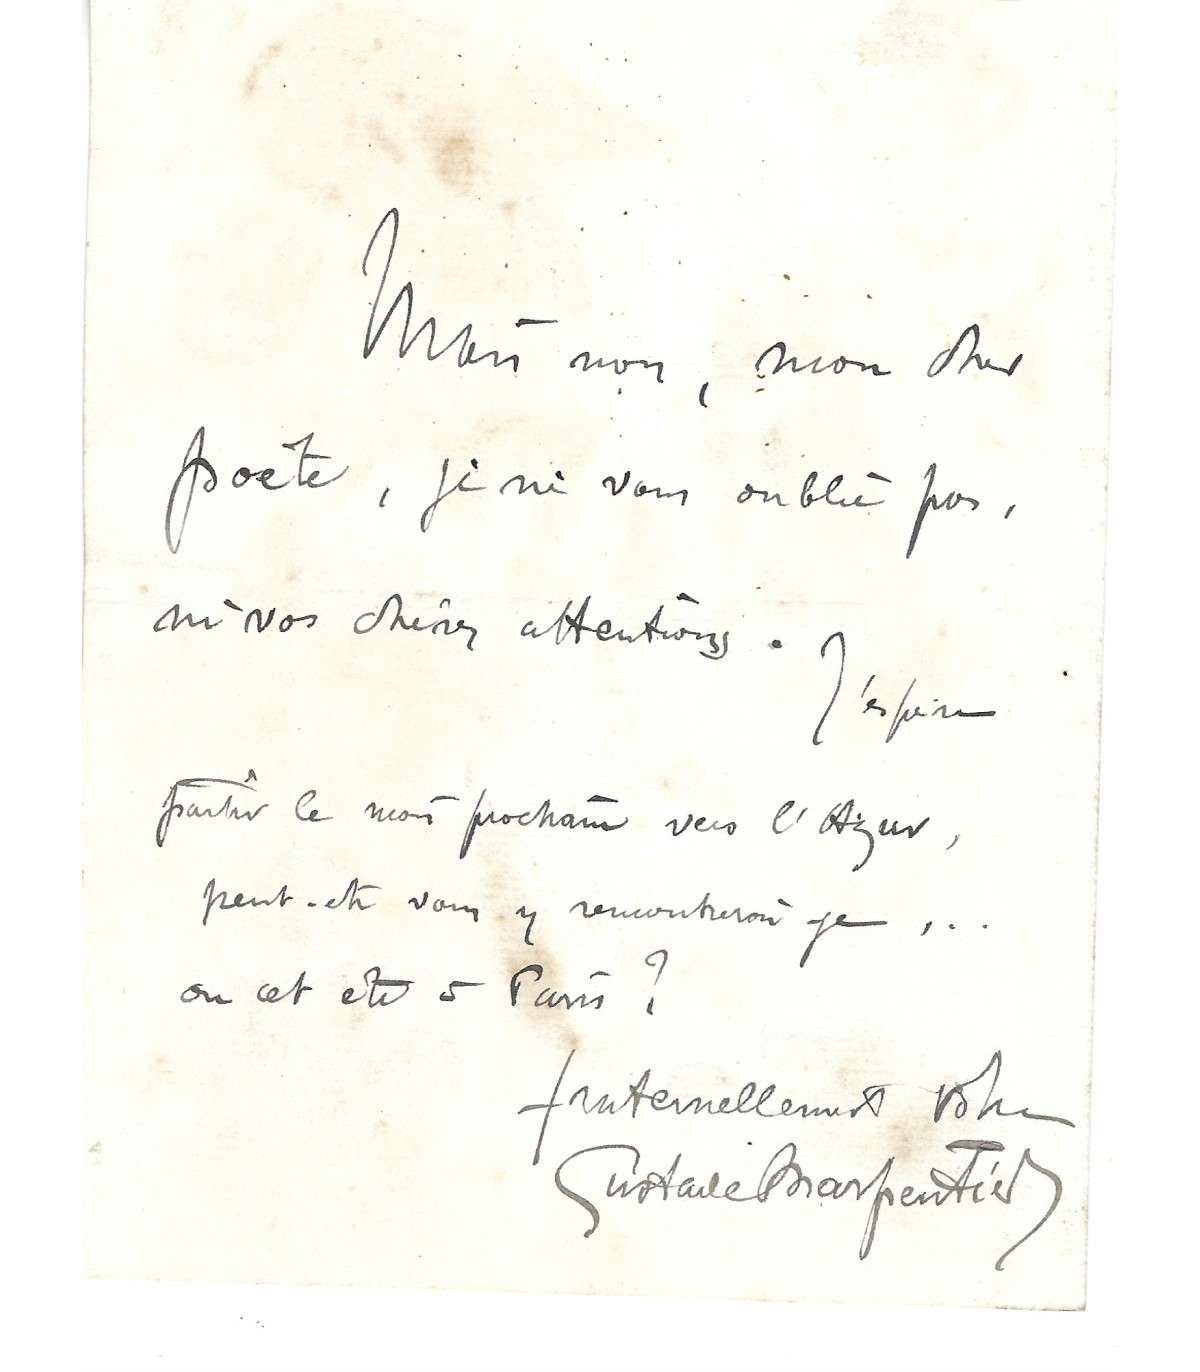 Mais non, mon cher
poète, je ne vous oublie pas,
ni vos chères attentions.
J'espère
partir le mois prochain vers l'Azur,
peut-être vous y rencontrerai-je, ...
ou cet été à Paris ?
fraternellement votre
Gustave Charpentier